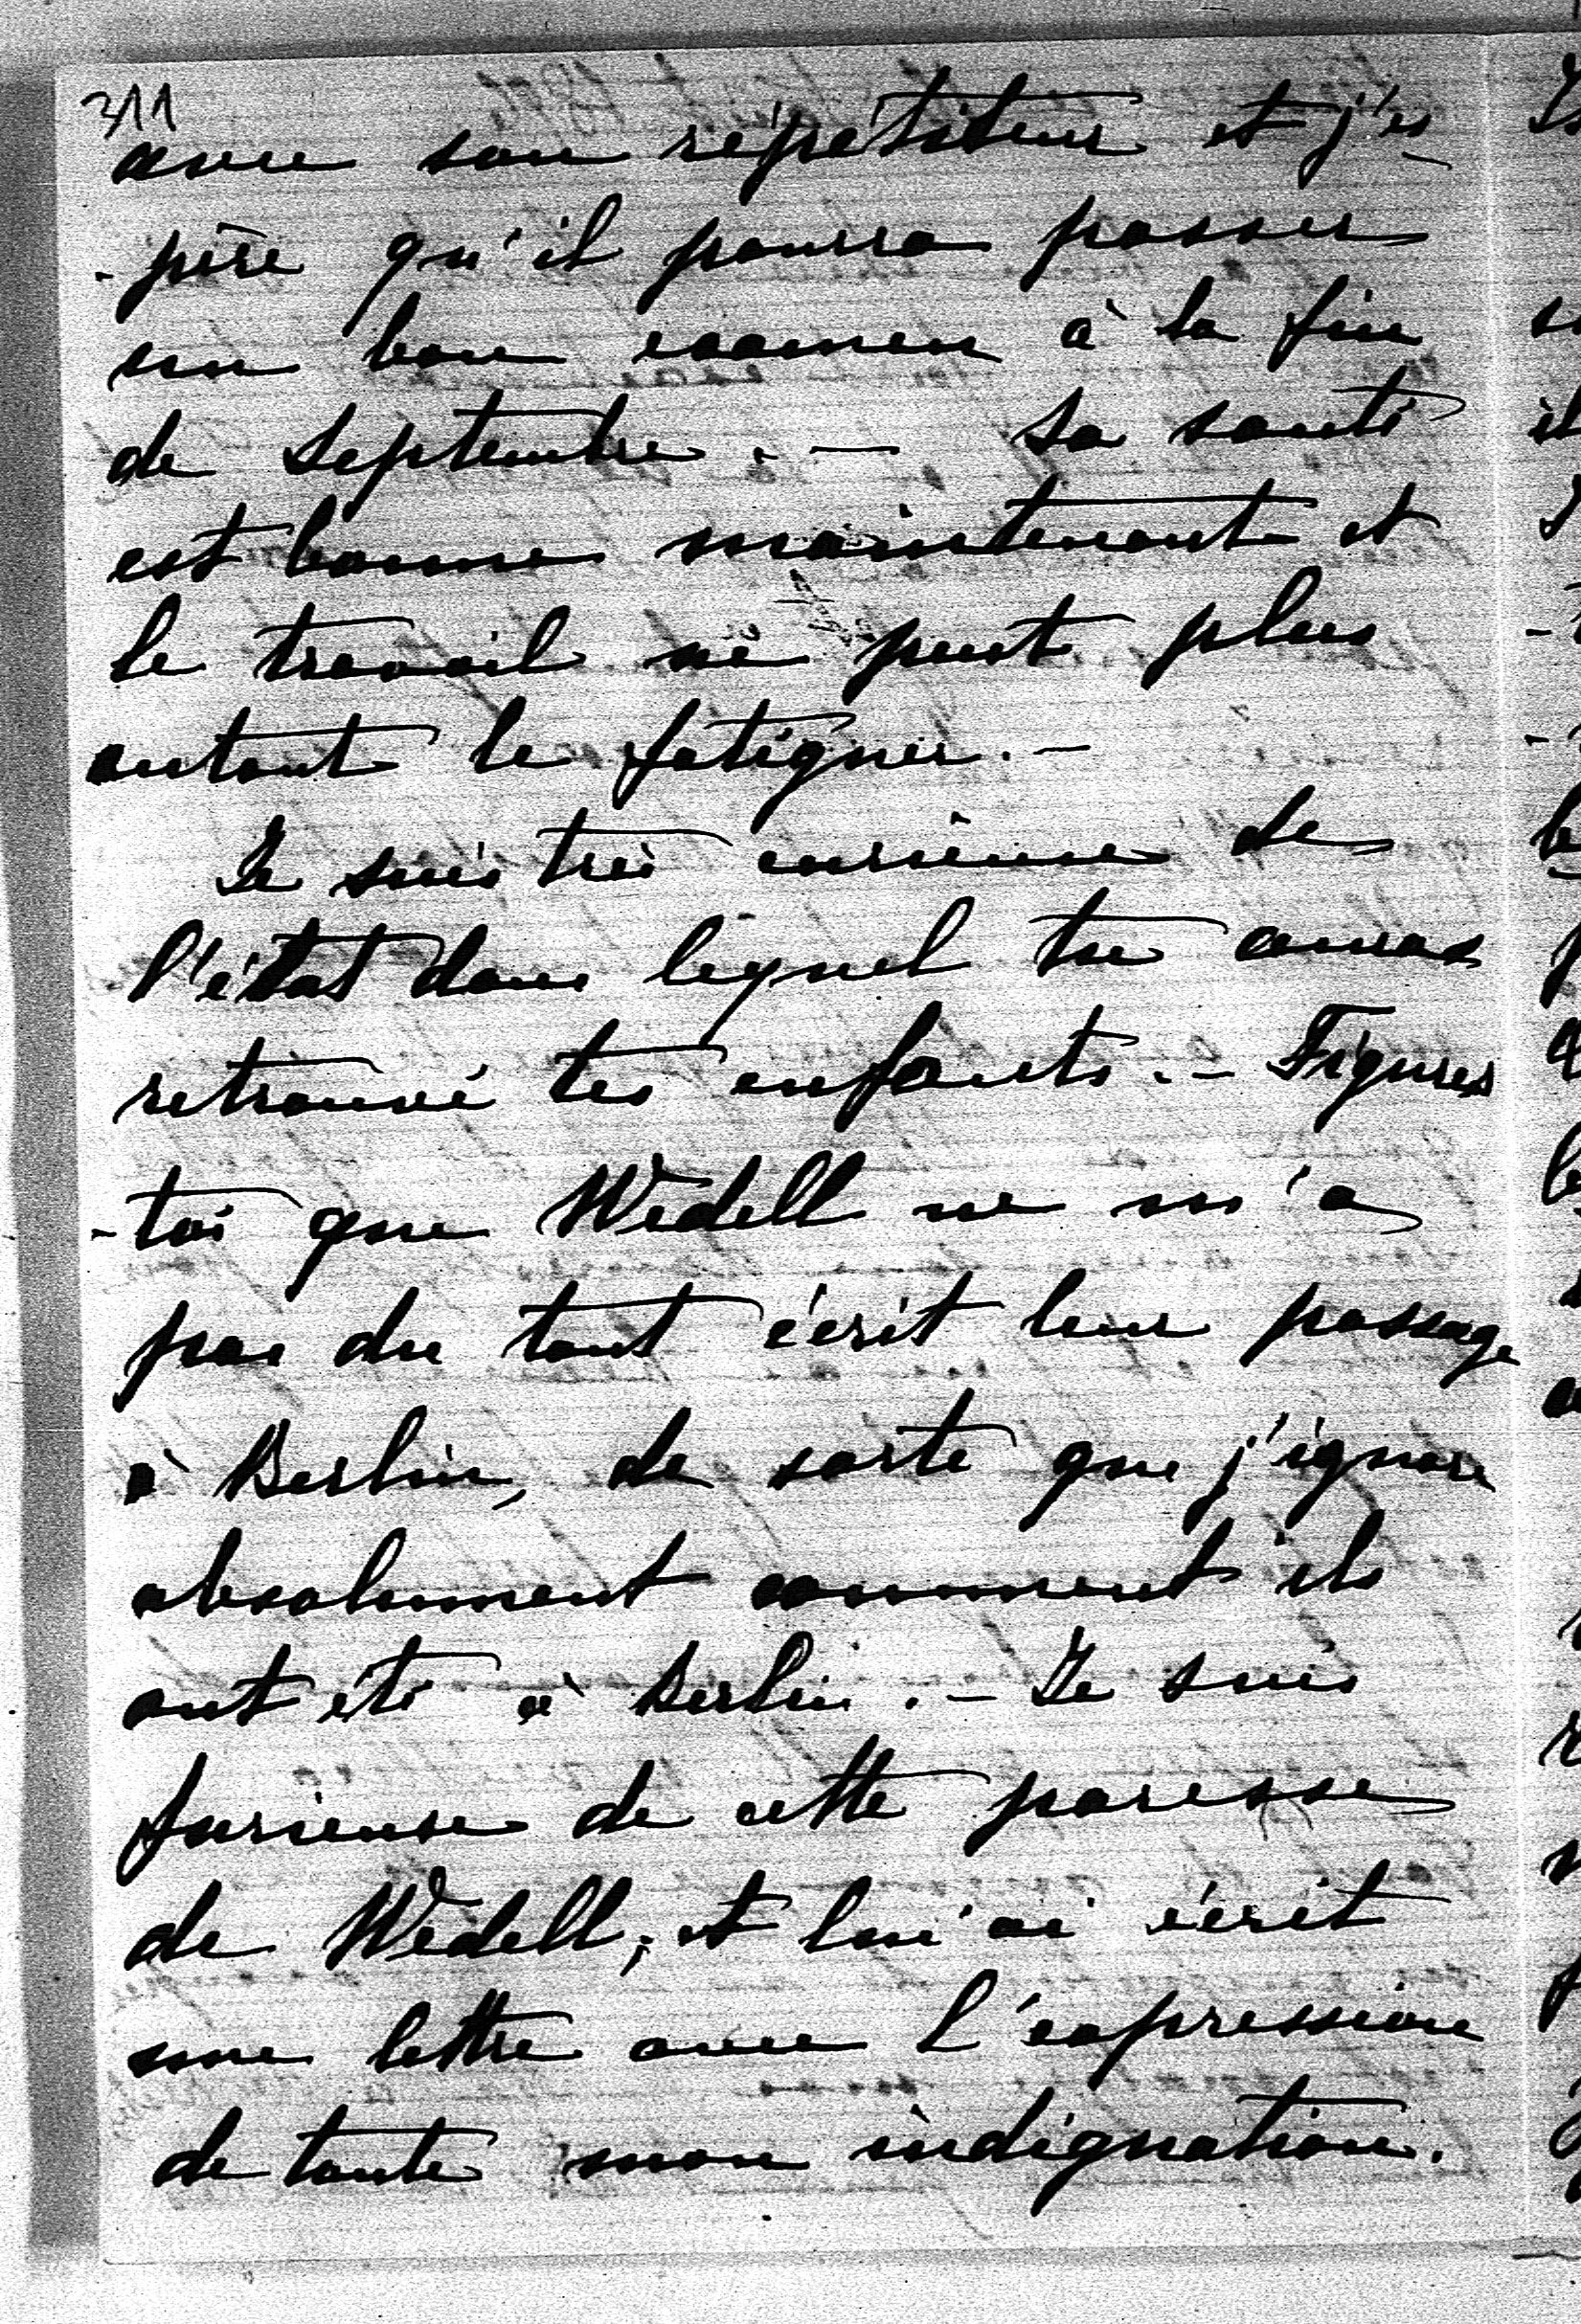 311
avec son répétiteur et j'es
-père qu'il pourra passer
un bon examen à la fin
de Septembre. — Sa santé
est bonne maintenant et
le travail ne peut plus
autant le fatiguer. —
Je suis très curieuse de
l'état dans lequel tu auras
retrouvé tes enfants. — Figures
-toi que Wedell ne m'a
pas du tout écrit leur passage
à Berlin, de sorte que j'ignore
absolument comment ils
ont été à Berlin. — Je suis
furieuse de cette paresse
de Wedell, et lui ai écrit
une lettre avec l'expression
de toute mon indignation.